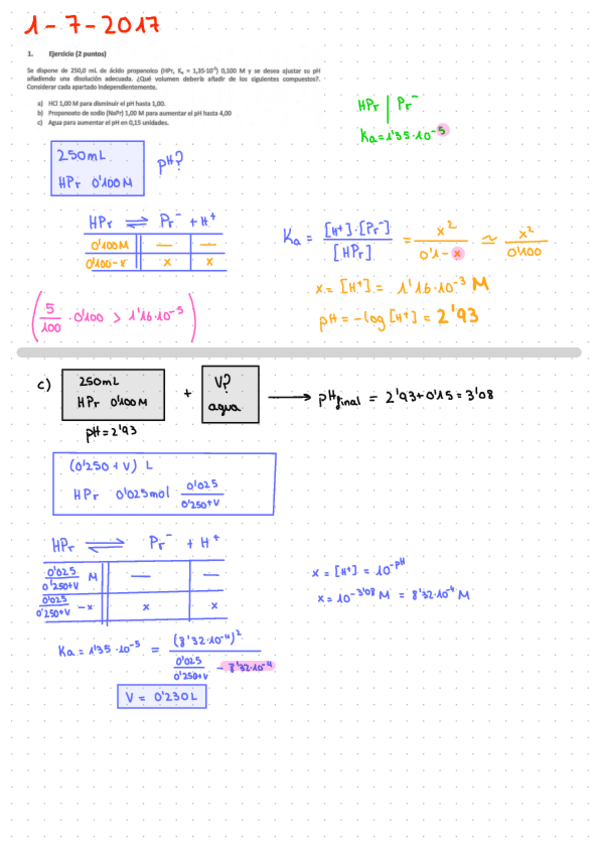 1-7-2017
1. Ejercicio (2 puntos)
Se dispone de 250,0 mL de ácido propanoico (HPr, Kₐ = 1,35·10⁻⁵) 0,100 M y se desea ajustar su pH
añadiendo una disolución adecuada. ¿Qué volumen debería añadir de los siguientes compuestos?.
Considerar cada apartado independientemente.
a) HCl 1,00 M para disminuir el pH hasta 1,00.
b) Propanoato de sodio (NaPr) 1,00 M para aumentar el pH hasta 4,00
c) Agua para aumentar el pH en 0,15 unidades.
HPr | Pr⁻
Ka=1'35·10⁻⁵
250mL
HPr 0'100M
pH?
HPr ⇌ Pr⁻ + H⁺
0'100M — —
0'100-x x x
Ka = [H⁺]·[Pr⁻] / [HPr] = x² / 0'1-x ≃ x² / 0'100
x = [H⁺] = 1'16·10⁻³ M
pH = -log [H⁺] = 2'93
(5/100 · 0'100 > 1'16·10⁻³)
c) 250mL
HPr 0'100M
pH=2'93
+
V?
agua
⟶ pHfinal = 2'93+0'15 = 3'08
(0'250 + V) L
HPr 0'025mol 0'025/0'250+V
HPr ⇌ Pr⁻ + H⁺
0'025/0'250+V M — —
0'025/0'250+V -x x x
x = [H⁺] = 10^-pH
x = 10^-3'08 M = 8'32·10⁻⁴ M
Ka = 1'35·10⁻⁵ = (8'32·10⁻⁴)² / 0'025/0'250+V - 8'32·10⁻⁴
V = 0'230L